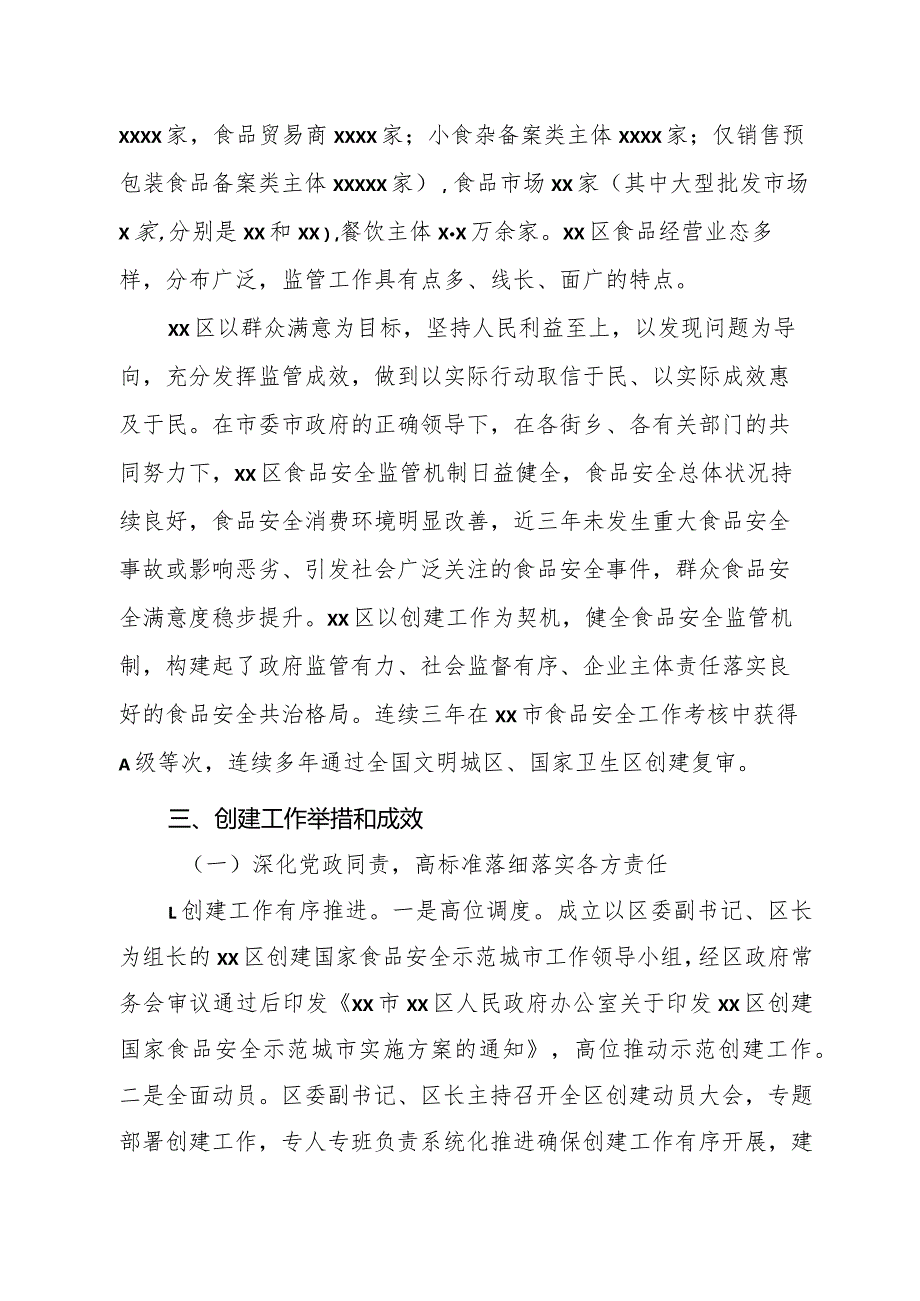 xxxx家，食品贸易商xxxx家；小食杂备案类主体xxxx家；仅销售预
包装食品备案类主体xxxxx家）,食品市场xx家（其中大型批发市场
x家,分别是xx和xx),餐饮主体x•x万余家。xx区食品经营业态多
样，分布广泛，监管工作具有点多、线长、面广的特点。
xx区以群众满意为目标，坚持人民利益至上，以发现问题为导
向，充分发挥监管成效，做到以实际行动取信于民、以实际成效惠
及于民。在市委市政府的正确领导下，在各街乡、各有关部门的共
同努力下，xx区食品安全监管机制日益健全，食品安全总体状况持
续良好，食品安全消费环境明显改善，近三年未发生重大食品安全
事故或影响恶劣、引发社会广泛关注的食品安全事件，群众食品安
全满意度稳步提升。xx区以创建工作为契机，健全食品安全监管机
制，构建起了政府监管有力、社会监督有序、企业主体责任落实良
好的食品安全共治格局。连续三年在xx市食品安全工作考核中获得
A级等次，连续多年通过全国文明城区、国家卫生区创建复审。
三、创建工作举措和成效
（一）深化党政同责，高标准落细落实各方责任
L创建工作有序推进。一是高位调度。成立以区委副书记、区长
为组长的xx区创建国家食品安全示范城市工作领导小组,经区政府常
务会审议通过后印发《xx市xx区人民政府办公室关于印发xx区创建
国家食品安全示范城市实施方案的通知》，高位推动示范创建工作。
二是全面动员。区委副书记、区长主持召开全区创建动员大会，专题
部署创建工作，专人专班负责系统化推进确保创建工作有序开展，建